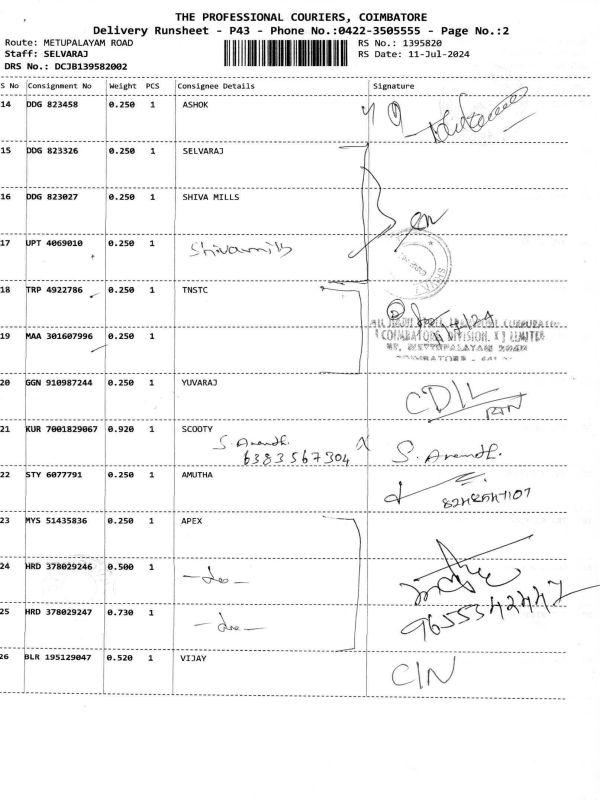 THE PROFESSIONAL COURIERS, COIMBATORE
Delivery Runsheet - P43 - Phone No.:0422-3505555 - Page No.:2
Route: METUPALAYAM ROAD
RS No.: 1395820
Staff: SELVARAJ
RS Date: 11-Jul-2024
DRS No.: DCJB139582002
S No Consignment No Weight PCS Consignee Details Signature
14 DDG 823458 0.250 1 ASHOK
15 DDG 823326 0.250 1 SELVARAJ
16 DDG 823027 0.250 1 SHIVA MILLS
17 UPT 4069010 0.250 1 Shivamills
18 TRP 4922786 0.250 1 TNSTC
19 MAA 301607996 0.250 1
COIMBATORE DIVISION, LIMITED
20 GGN 910987244 0.250 1 YUVARAJ
21 KUR 7001829067 0.920 1 SCOOTY
S. Anandh. S. Anandh.
6383567304
22 STY 6077791 0.250 1 AMUTHA
23 MYS 51435836 0.250 1 APEX
24 HRD 378029246 0.500 1 -do-
25 HRD 378029247 0.730 1 -do-
9655342447
26 BLR 195129047 0.520 1 VIJAY C/N